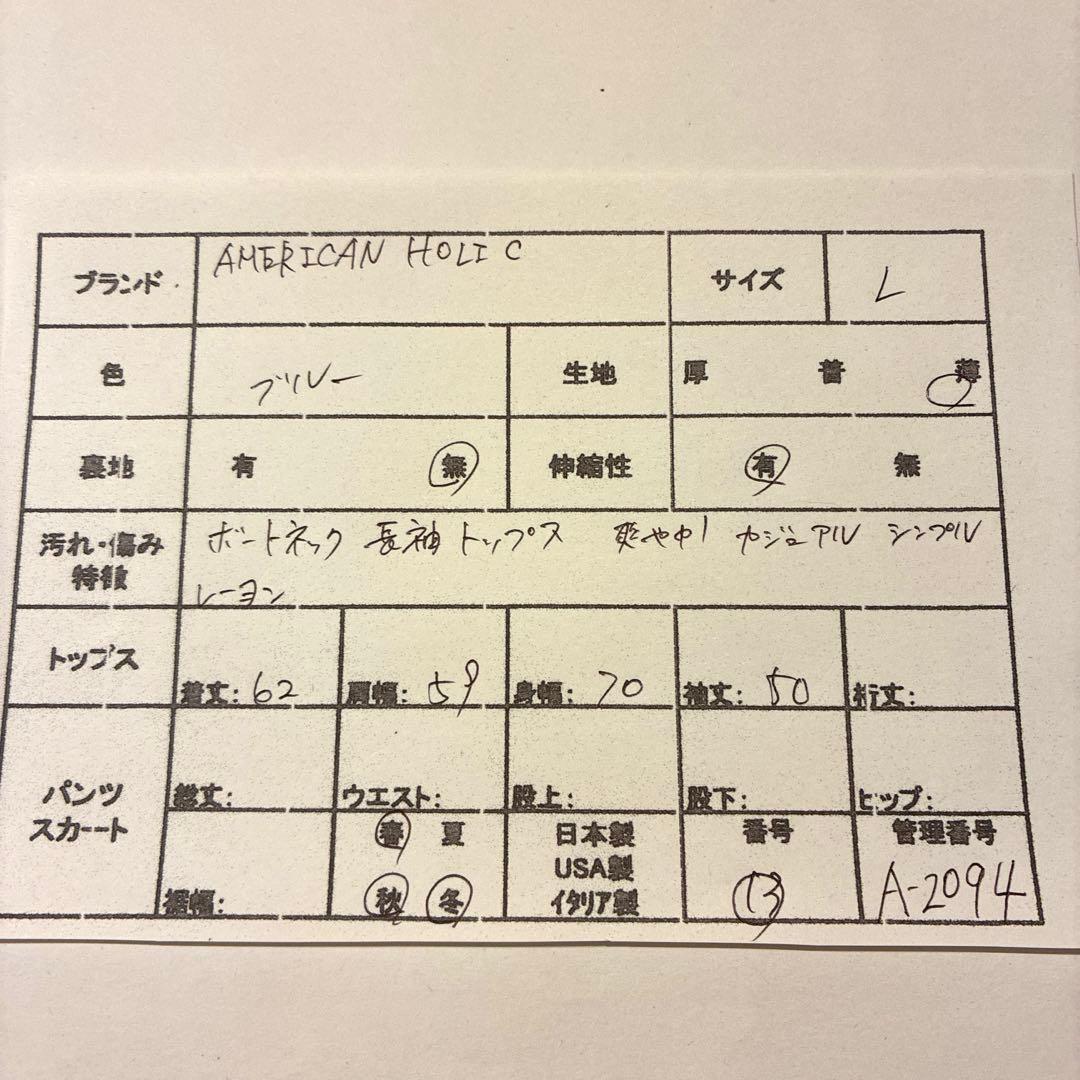 ブランド AMERICAN HOLIC サイズ L
色 ブルー 生地 厚 普 薄
裏地 有 無 伸縮性 有 無
汚れ・傷み ボートネック 長袖トップス 爽やか カジュアル シンプル
特徴 レーヨン
トップス
着丈: 62 肩幅: 59 身幅: 70 袖丈: 50 裄丈:
パンツ
スカート
総丈: ウエスト: 股上: 股下: ヒップ:
春 夏 日本製 番号 管理番号
USA製
裾幅: 秋 冬 イタリア製 13 A-2094